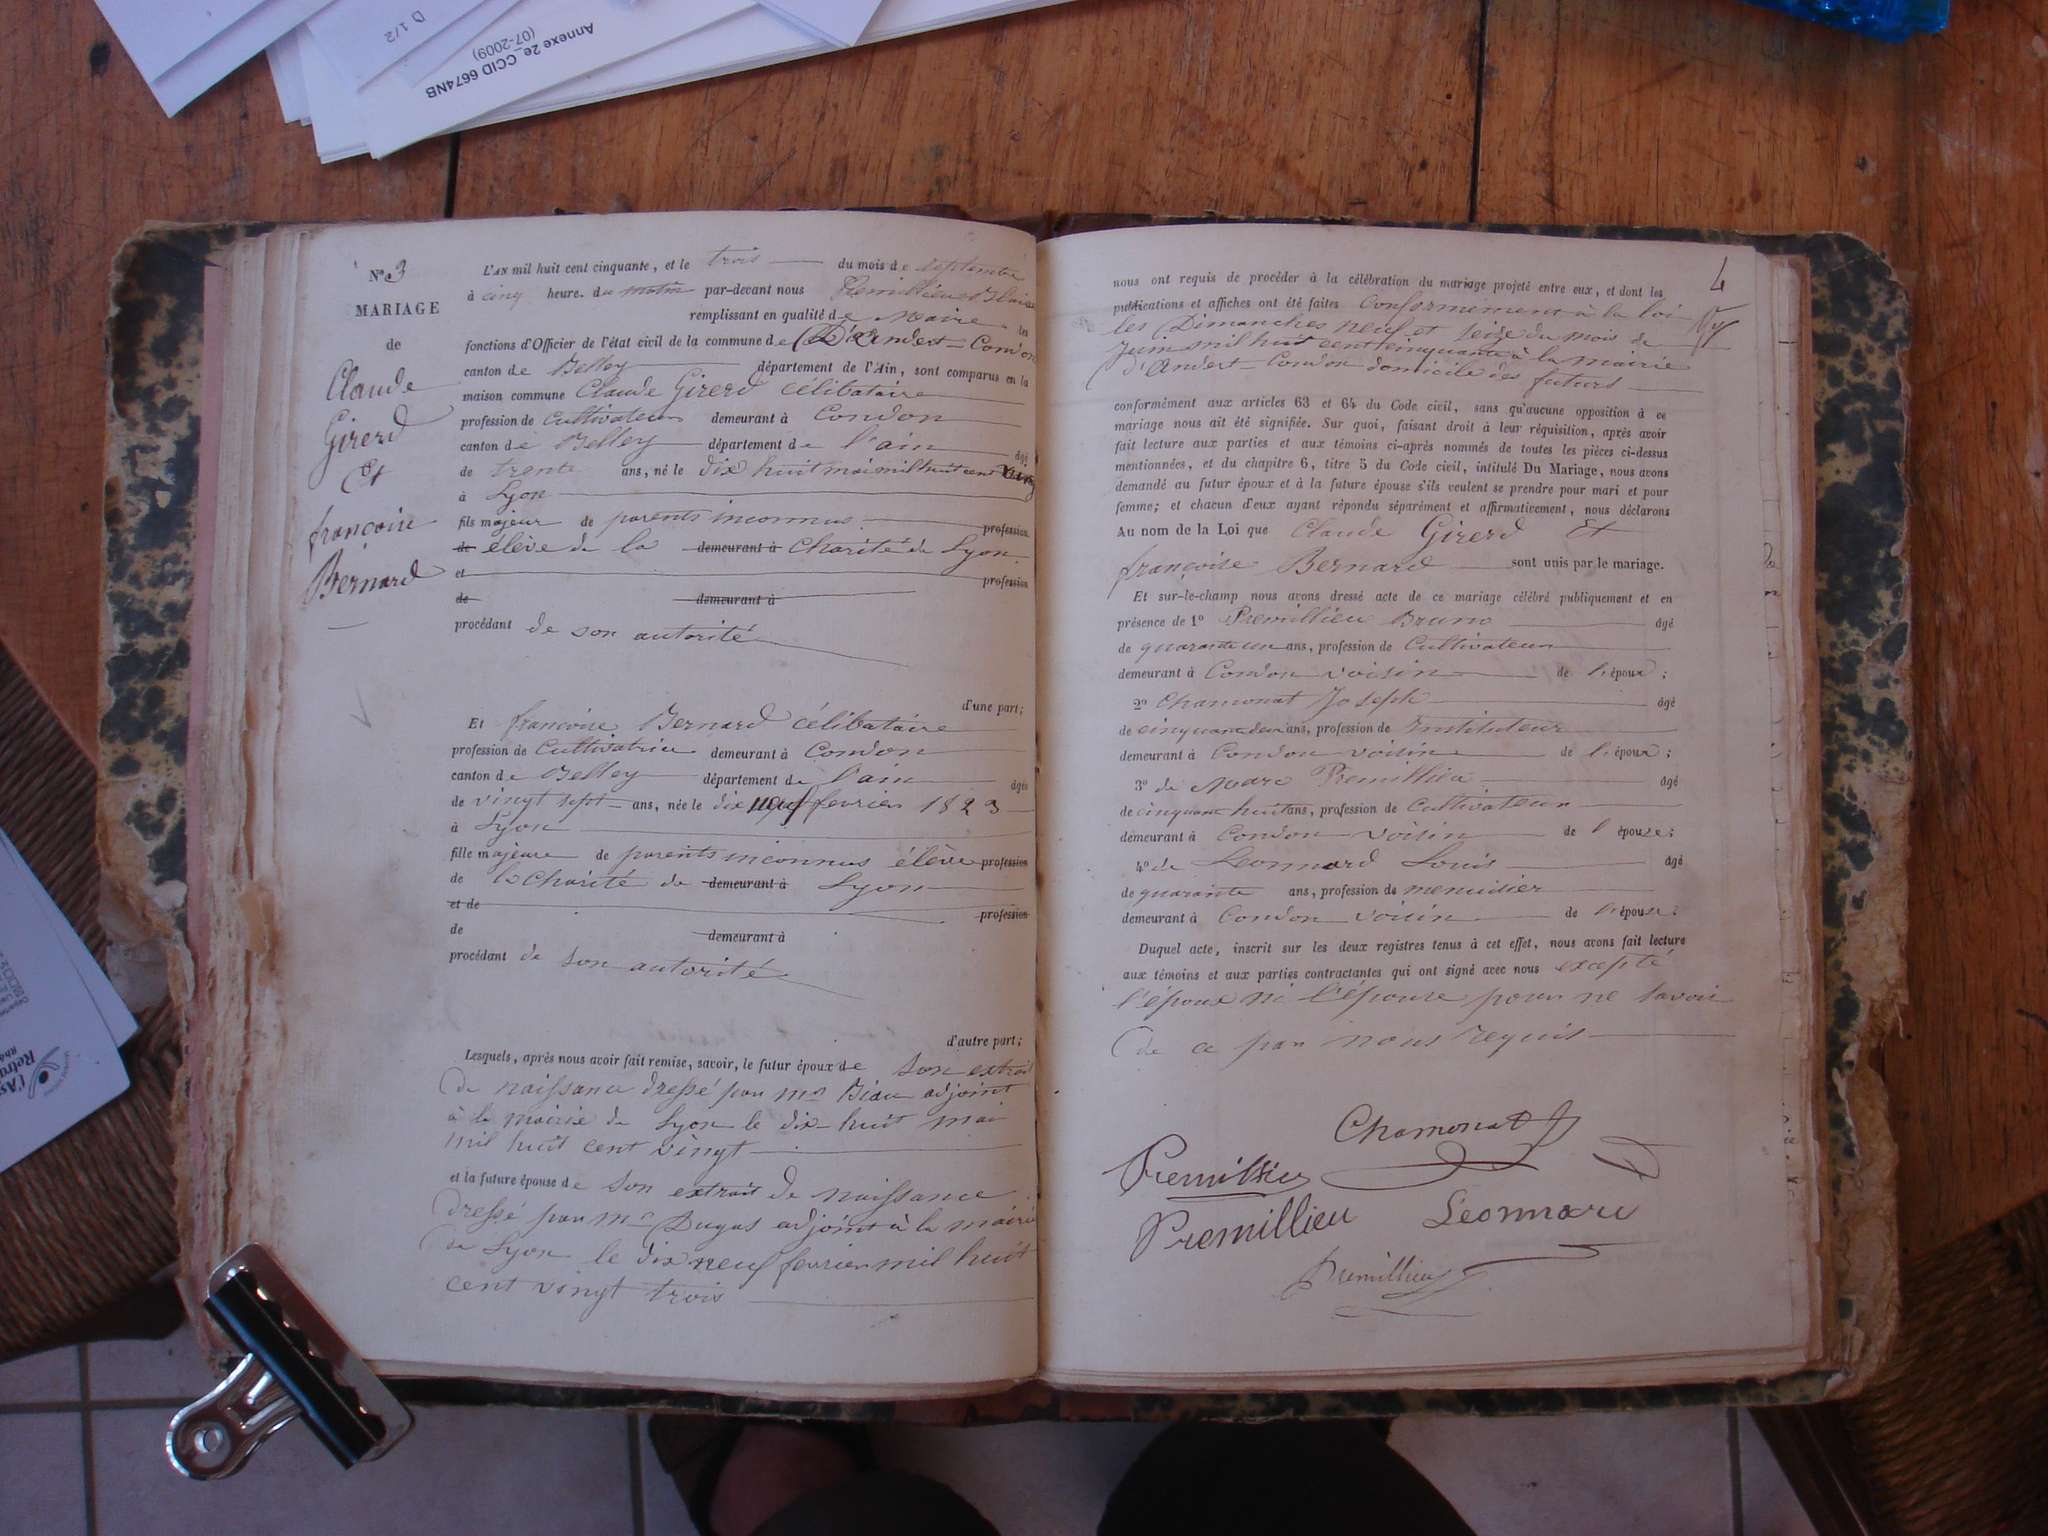 D 1/2
Annexe 2e_CCID 6674NB
(07-2009)
N° 3
MARIAGE
de
Claude
Girerd
Et
françoise
Bernard
L'AN mil huit cent cinquante, et le trois du mois de septembre
à cinq heure. du matin par-devant nous Premillieu
remplissant en qualité de Maire les
fonctions d'Officier de l'état civil de la commune de D'Andert-Condon
canton de Belley département de l'Ain, sont comparus en la
maison commune Claude Girerd célibataire
profession de Cultivateur demeurant à Condon
canton de Belley département de l'ain âgé
de trente ans, né le dix huit mai mil huit cent vingt
à Lyon
fils majeur de parents inconnus profession
de élève de la demeurant à Charité de Lyon
et profession
de demeurant à
procédant de son autorité
d'une part;
Et françoise Bernard célibataire
profession de Cultivatrice demeurant à Condon
canton de Belley département de l'ain âgée
de vingt sept ans, née le dix neuf fevrier 1823
à Lyon
fille majeure de parents inconnus élève profession
de la Charité de demeurant à Lyon
et de profession
de demeurant à
procédant de son autorité
d'autre part;
Lesquels, après nous avoir fait remise, savoir, le futur époux de son extrait
de naissance dressé par mr adjoint
à la mairie de Lyon le dix huit mai
mil huit cent vingt
et la future épouse de son extrait de naissance
dressé par mr Dugas adjoint à la mairie
de Lyon le dix neuf fevrier mil huit
cent vingt trois
4
nous ont requis de procéder à la célébration du mariage projeté entre eux, et dont les
publications et affiches ont été faites Conformément à la loi
les Dimanches neuf et seize du mois de
Juin mil huit cent cinquante à la mairie
d'Andert-Condon domicile des futurs
conformément aux articles 63 et 64 du Code civil, sans qu'aucune opposition à ce
mariage nous ait été signifiée. Sur quoi, faisant droit à leur réquisition, après avoir
fait lecture aux parties et aux témoins ci-après nommés de toutes les pièces ci-dessus
mentionnées, et du chapitre 6, titre 5 du Code civil, intitulé Du Mariage, nous avons
demandé au futur époux et à la future épouse s'ils veulent se prendre pour mari et pour
femme; et chacun d'eux ayant répondu séparément et affirmativement, nous déclarons
Au nom de la Loi que Claude Girerd Et
françoise Bernard sont unis par le mariage.
Et sur-le-champ nous avons dressé acte de ce mariage célébré publiquement et en
présence de 1° Premillieu Bruno âgé
de quarante un ans, profession de Cultivateur
demeurant à Condon voisin de l'époux;
2° Chamonat Joseph âgé
de cinquante deux ans, profession de Instituteur
demeurant à Condon voisin de l'époux;
3° de Marc Premillieu âgé
de cinquante huit ans, profession de Cultivateur
demeurant à Condon voisin de l'épouse;
4° de Leonnard Louis âgé
de quarante ans, profession de menuisier
demeurant à Condon voisin de l'épouse.
Duquel acte, inscrit sur les deux registres tenus à cet effet, nous avons fait lecture
aux témoins et aux parties contractantes qui ont signé avec nous excepté
l'époux ni l'épouse pour ne savoir
de ce par nous requis
Chamonat J
Premillieu
Premillieu Léonnard
Premillieu